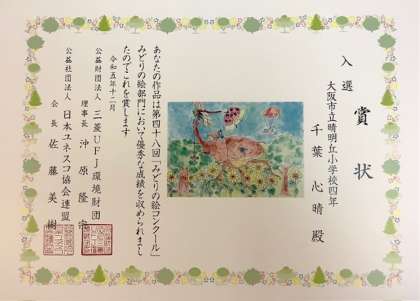 賞状
入選
大阪市立晴明丘小学校四年
千葉心晴殿
あなたの作品は第四十八回「みどりの絵コンクール」
みどりの絵部門において優秀な成績を収められまし
たのでこれを賞します
令和五年十二月
公益財団法人 三菱UFJ環境財団
理事長 沖原隆宗
公益社団法人 日本ユネスコ協会連盟
会長 佐藤美樹